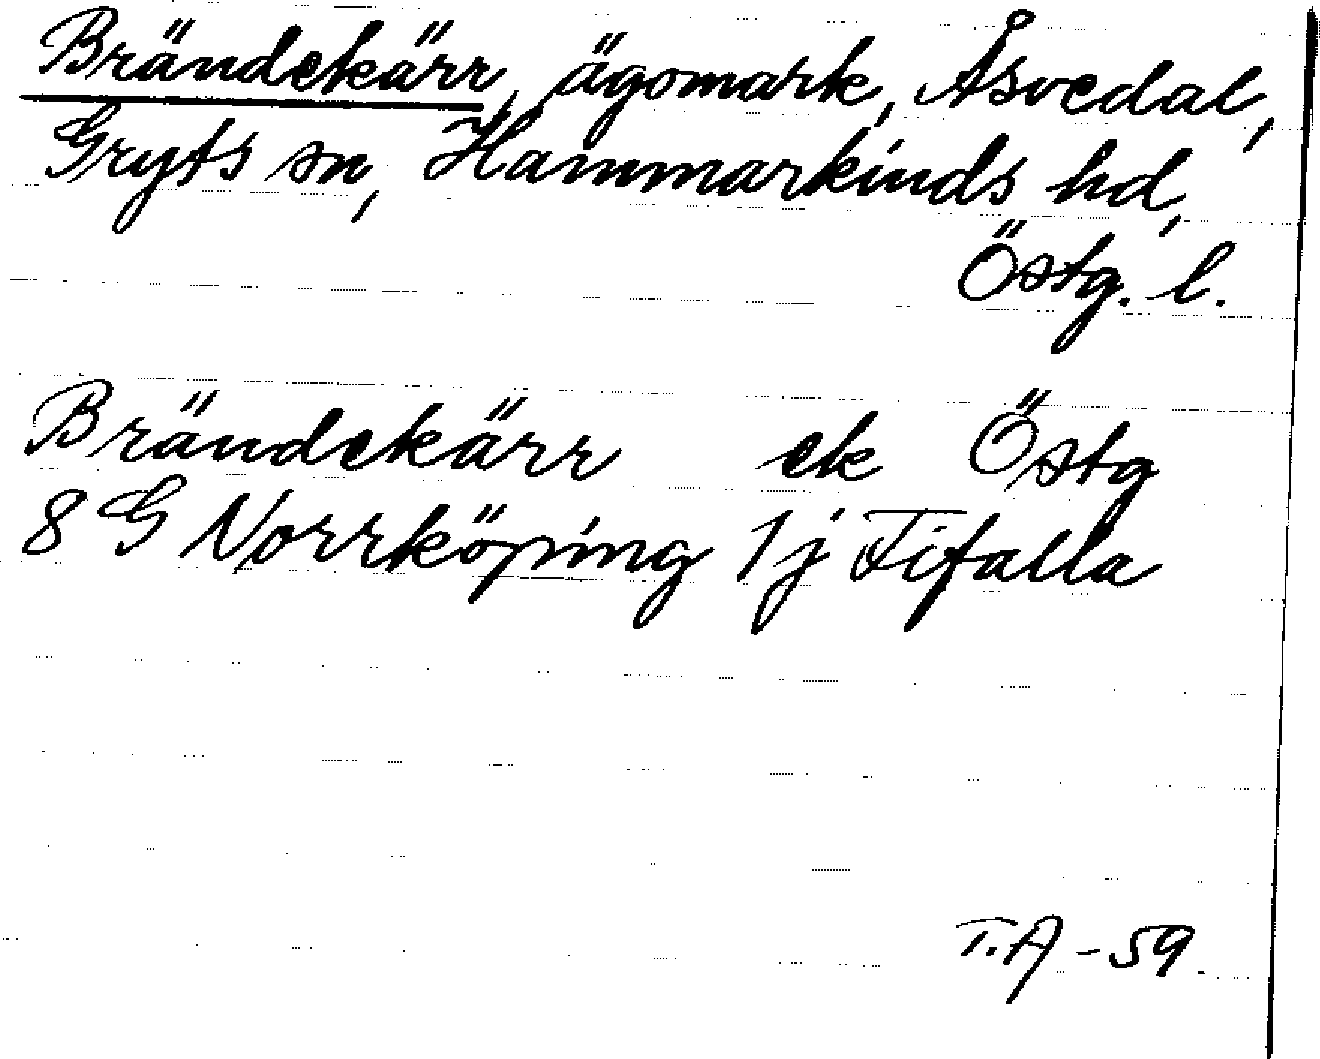 Brändekärr, ägomark, Åsvedal,
Gryts sn, Hammarkinds hd,
Östg. l.
Brändekärr ek Östg
8 G Norrköping 1j Fifalla
T.A -59